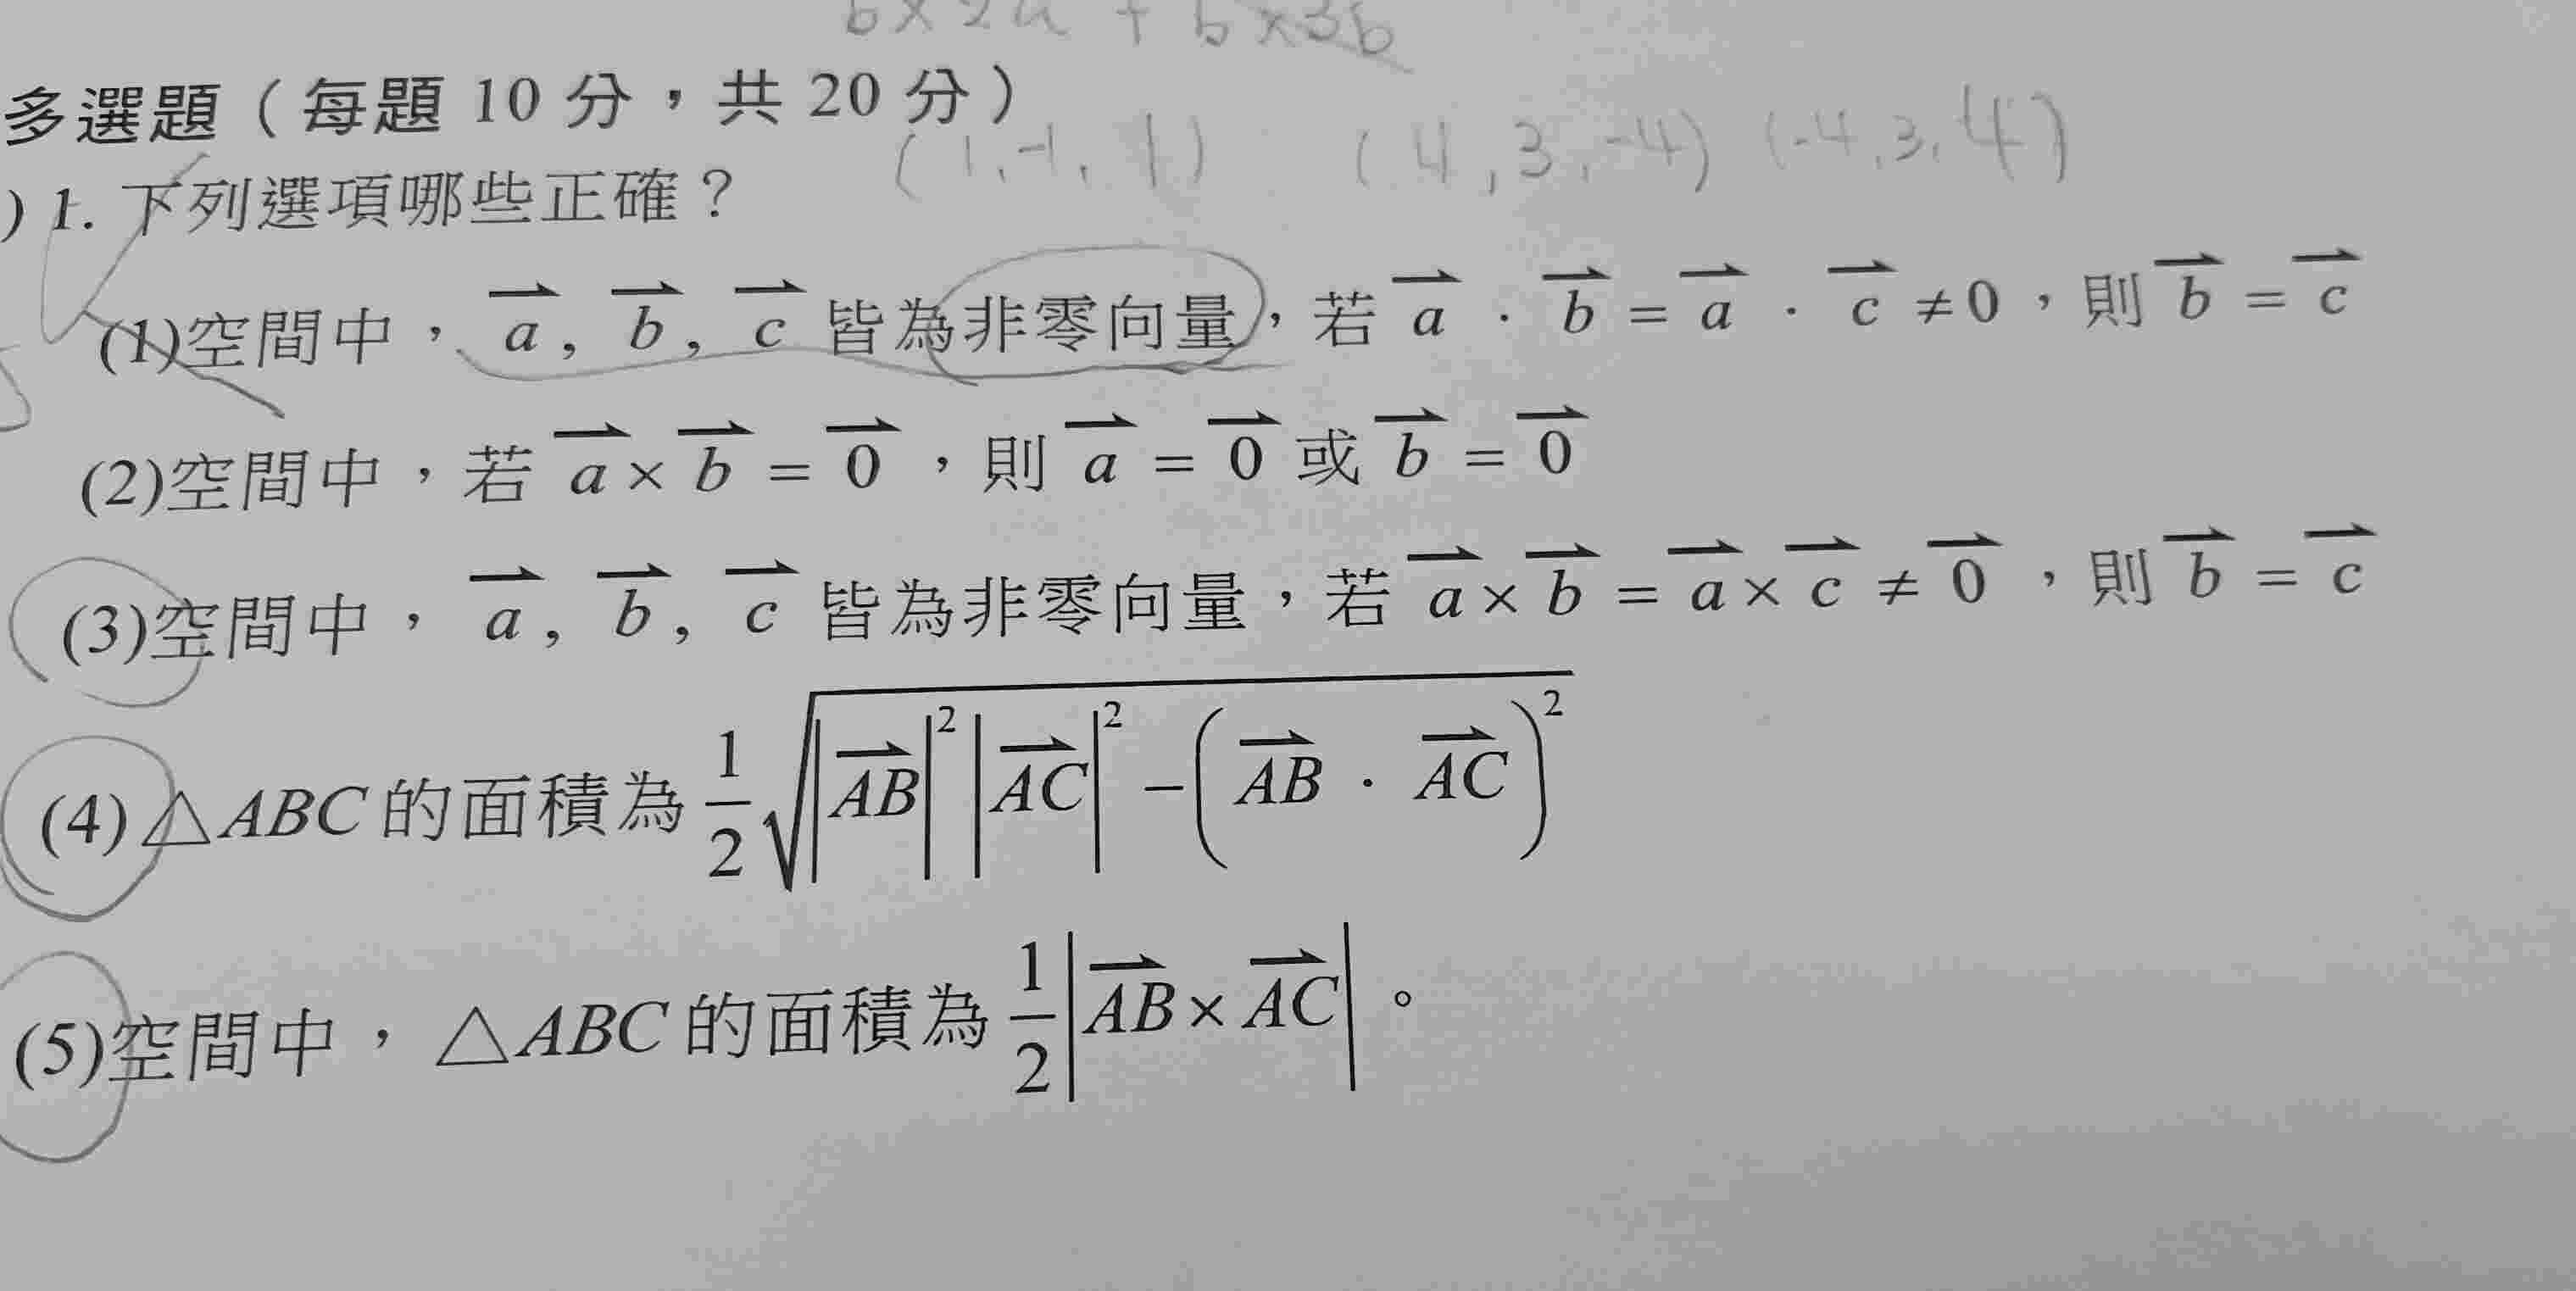 b×2a + b×3b
多選題（每題 10 分，共 20 分）
(1,-1,1) (4,3,-4) (-4,3,4)
) 1. 下列選項哪些正確？
(1)空間中，$\vec{a}$, $\vec{b}$, $\vec{c}$ 皆為非零向量，若 $\vec{a}$ · $\vec{b}$ = $\vec{a}$ · $\vec{c}$ ≠0，則 $\vec{b}$ = $\vec{c}$
(2)空間中，若 $\vec{a}$ × $\vec{b}$ = $\vec{0}$，則 $\vec{a}$ = $\vec{0}$ 或 $\vec{b}$ = $\vec{0}$
(3)空間中，$\vec{a}$, $\vec{b}$, $\vec{c}$ 皆為非零向量，若 $\vec{a}$ × $\vec{b}$ = $\vec{a}$ × $\vec{c}$ ≠ $\vec{0}$，則 $\vec{b}$ = $\vec{c}$
(4)△ABC 的面積為 $\frac{1}{2}\sqrt{|\overrightarrow{AB}|^2|\overrightarrow{AC}|^2-(\overrightarrow{AB}\cdot\overrightarrow{AC})^2}$
(5)空間中，△ABC 的面積為 $\frac{1}{2}|\overrightarrow{AB}\times\overrightarrow{AC}|$。